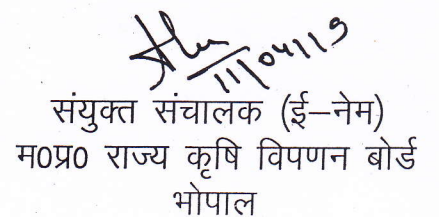 11/04/19
संयुक्त संचालक (ई–नेम)
म0प्र0 राज्य कृषि विपणन बोर्ड
भोपाल